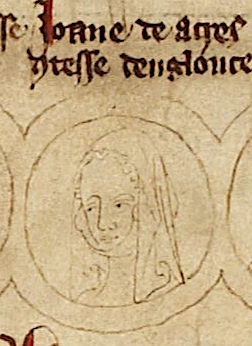 se Joane de acres
ntesse de nglouce